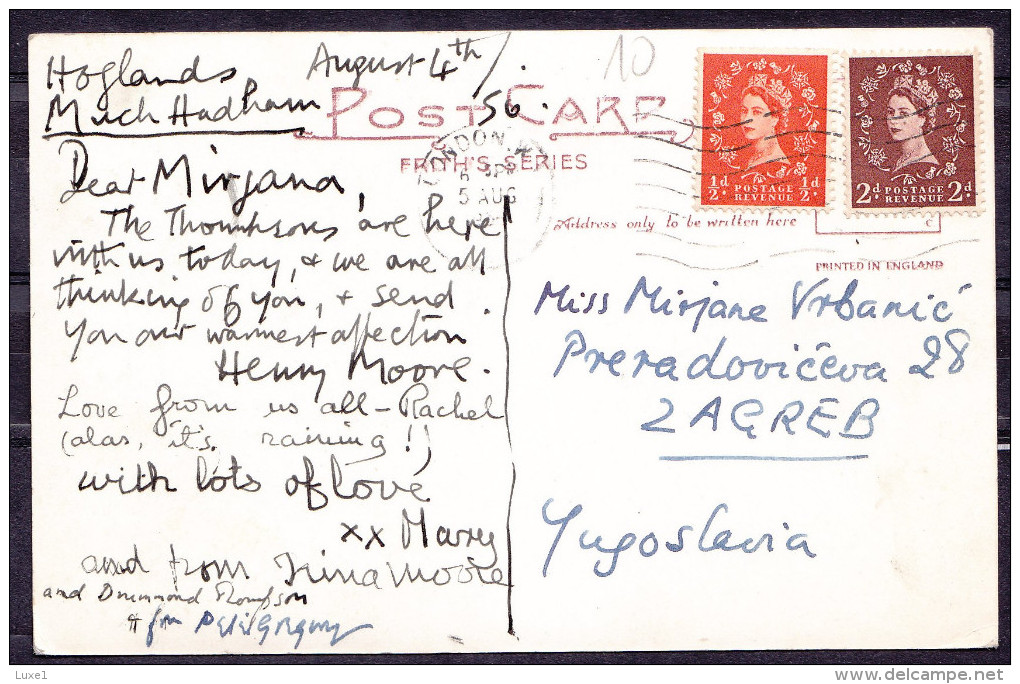 Hoglands August 4th/56.
Much Hadham
10
POST CARD
FRITH'S SERIES
LONDON.
5 AUG
½d POSTAGE REVENUE ½d
2d POSTAGE REVENUE 2d
Address only to be written here
PRINTED IN ENGLAND
Dear Mirjana,
The Thompsons are here
with us today, & we are all
thinking of you, & send
you our warmest affection.
Henry Moore.
Love from us all – Rachel
(alas, it's raining!)
with lots of love
xx Mary
and from Irina Moore
and Drummond Thompson
& from Peter Gregory
Miss Mirjane Vrbanić
Preradovićeva 28
ZAGREB
Yugoslavia
Luxe1
delcampe.net